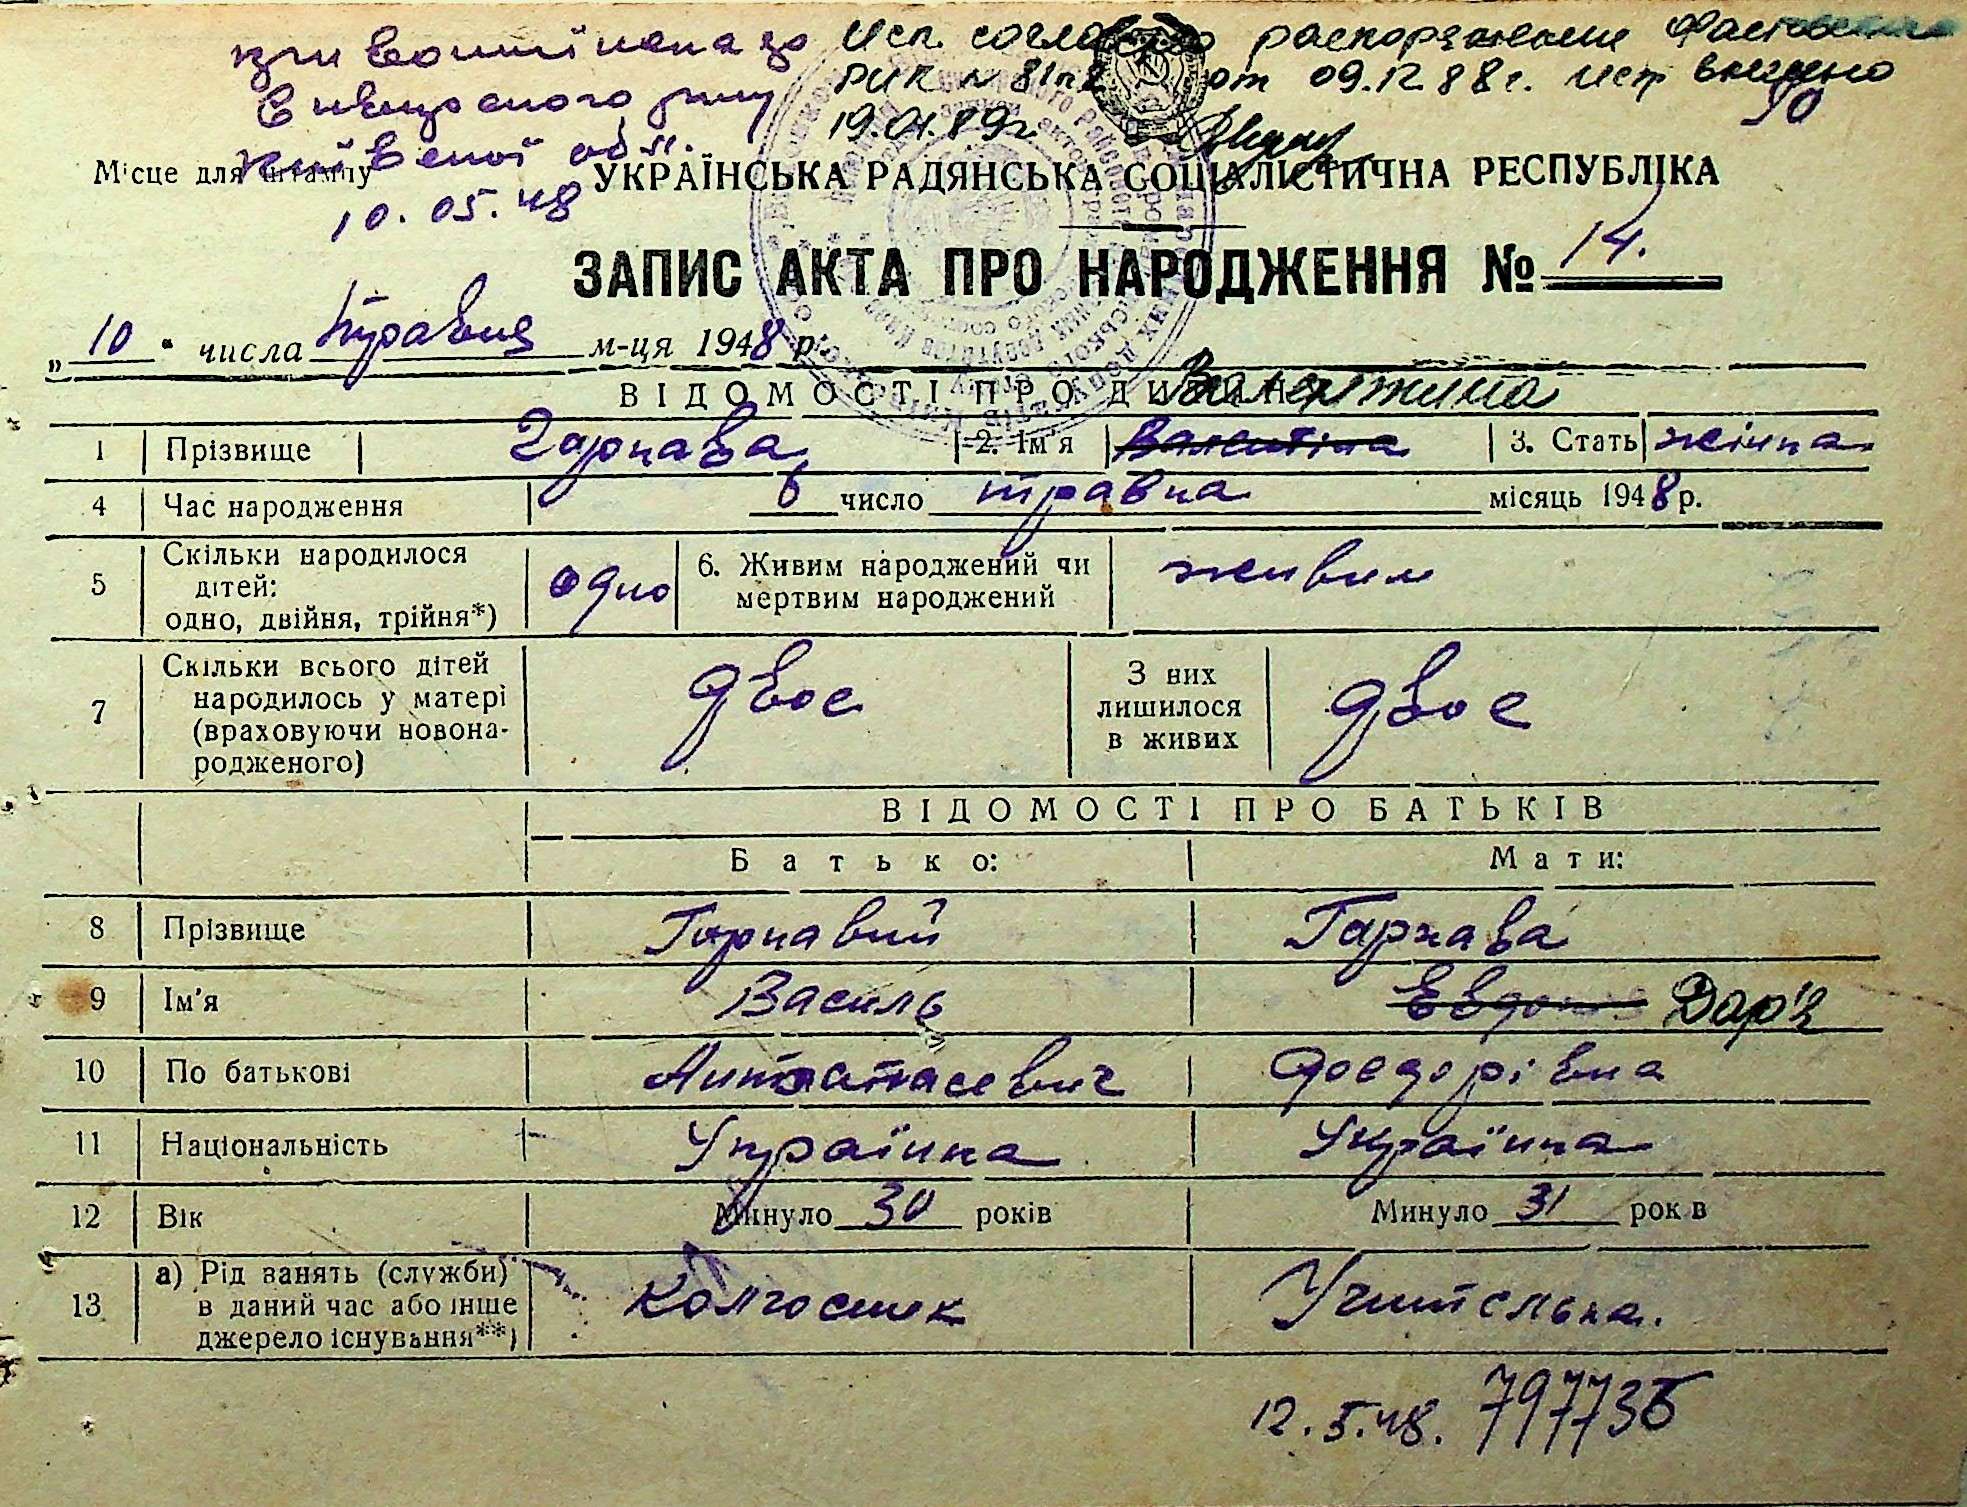 Исп. согласно распоряжении Фастовского
РИК № 81 от 09.12.88г. Исп внесено
19.01.89г.
Київської обл.
10.05.48
Місце для штампу
УКРАЇНСЬКА РАДЯНСЬКА СОЦІАЛІСТИЧНА РЕСПУБЛІКА
ЗАПИС АКТА ПРО НАРОДЖЕННЯ № 14.
„10“ числа травня м-ця 1948 р.
ВІДОМОСТІ ПРО ДИТИНУ Валентина
1 Прізвище Гарнава 2. Ім'я Валентіна 3. Стать жіноча
4 Час народження 6 число травня місяць 1948 р.
5 Скільки народилося дітей: одно, двійня, трійня*) одно 6. Живим народжений чи мертвим народжений живим
7 Скільки всього дітей народилось у матері (враховуючи новонародженого) двоє З них лишилося в живих двоє
ВІДОМОСТІ ПРО БАТЬКІВ
Батько: Мати:
8 Прізвище Гарнавий Гарнава
9 Ім'я Василь Дар'я
10 По батькові Федорівна
11 Національність Українка Українка
12 Вік Минуло 30 років Минуло 31 років
13 а) Рід занять (служби) в даний час або інше джерело існування**) Колгоспник Учителька.
12.5.48. 797735